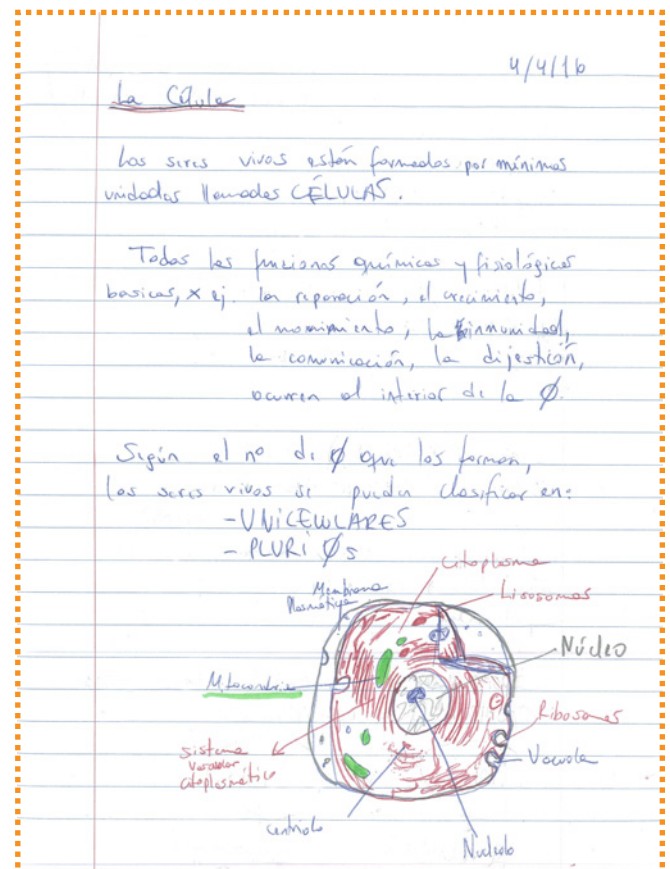 4/4/16
La Célula
Los seres vivos están formados por mínimas
unidades llamadas CÉLULAS.
Todas las funciones químicas y fisiológicas
basicas, x ej. la reparación, el crecimiento,
el movimiento, la inmunidad,
la comunicación, la dijestión,
ocurren al interior de la Ø.
Según el nº de Ø que los forman,
los seres vivos se pueden clasificar en:
- UNICELULARES
- PLURI Øs
Citoplasma
Membrana
Plasmática
Lisosomas
Núcleo
Mitocondria
Ribosomas
Sistema
vacuolar
citoplasmático
Vacuola
Centriolo
Nucleolo